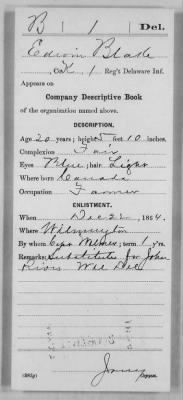 B | 1 | Del.
Edwin Blake
Co. K, 1 Reg't Delaware Inf.
Appears on
Company Descriptive Book
of the organization named above.
DESCRIPTION.
Age 20 years; height 5 feet 10 inches.
Complexion Fair
Eyes Blue; hair Light
Where born Canada
Occupation Farmer
ENLISTMENT.
When Dec 22, 1864.
Where Wilmington
By whom Capt Wilmer; term 1 y'rs.
Remarks: Substitute for John
Rivers Wil Del
Copyist.